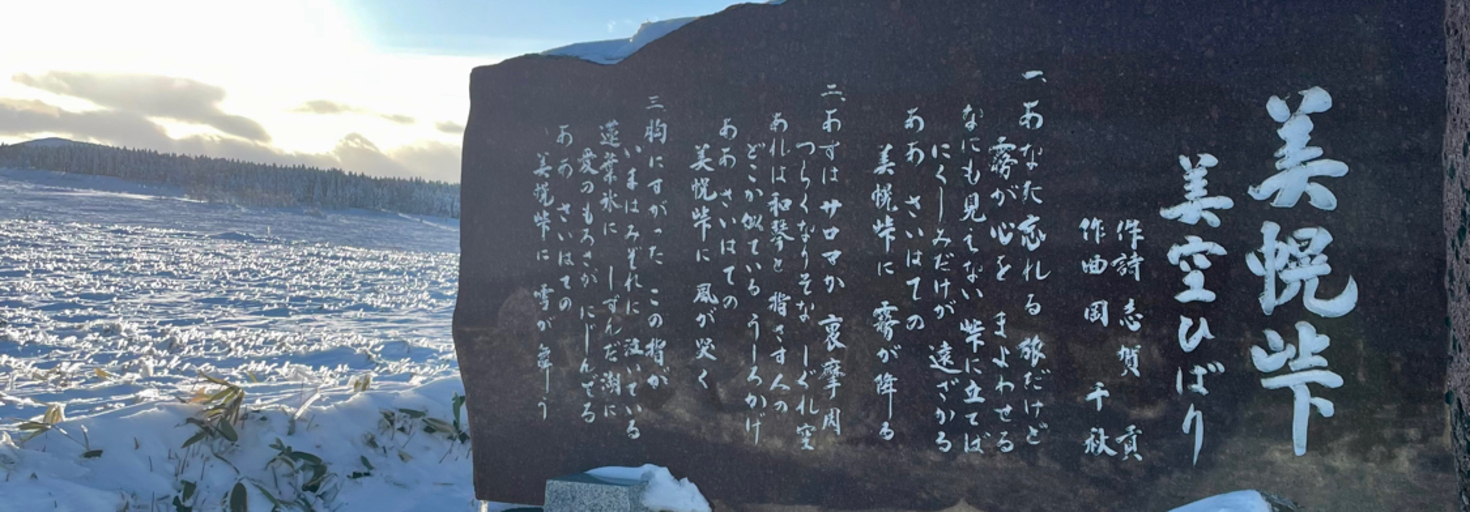 美幌峠
美空ひばり
作詩 志賀 貢
作曲 岡 千秋
一、あなた忘れる 旅だけど
霧が心を まよわせる
なにも見えない 峠に立てば
にくしみだけが 遠ざかる
ああ さいはての
美幌峠に 霧が降る
二、あすはサロマか 裏摩周
つらくなりそな しぐれ空
あれは和琴と 指さす人の
どこか似ている うしろかげ
ああ さいはての
美幌峠に 風が哭く
三 胸にすがった この指が
いまはみぞれに 泣いている
蓮葉氷に しずんだ湖に
愛のもろさが にじんでる
ああ さいはての
美幌峠に 雪が舞う